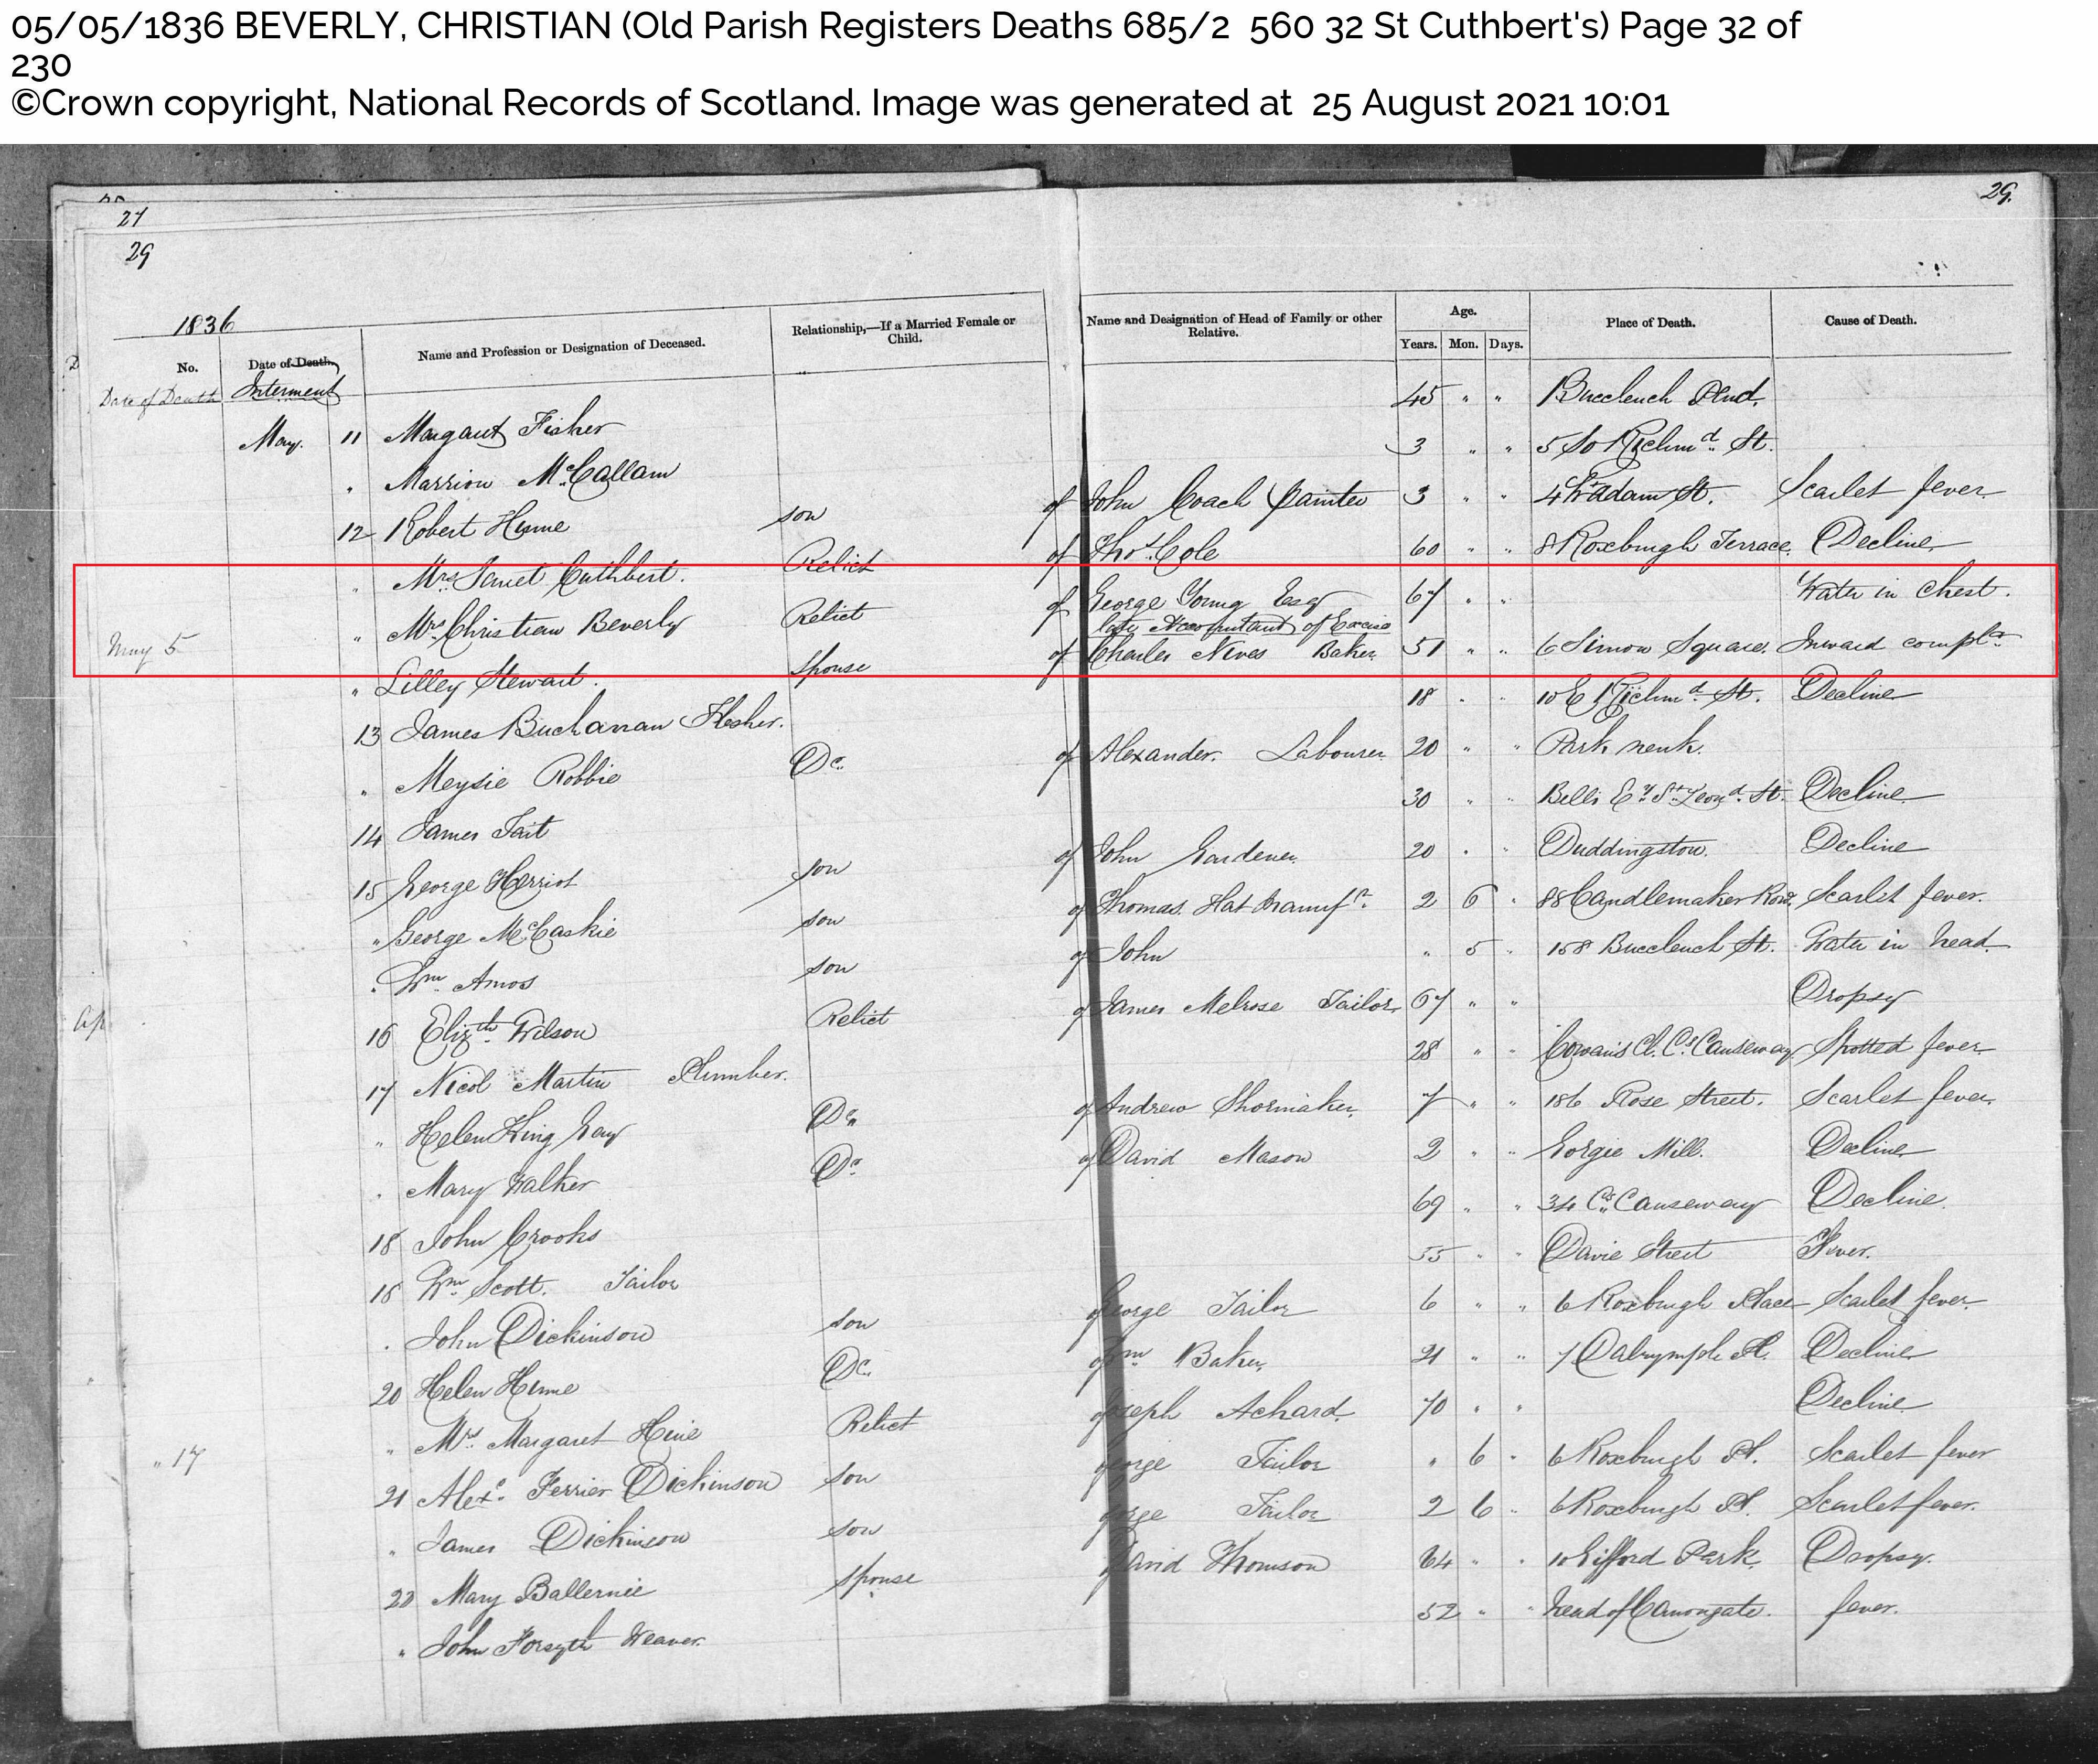 05/05/1836 BEVERLY, CHRISTIAN (Old Parish Registers Deaths 685/2 560 32 St Cuthbert's) Page 32 of
230
©Crown copyright, National Records of Scotland. Image was generated at 25 August 2021 10:01
27
29
29.
1836
No. Date of Death Name and Profession or Designation of Deceased. Relationship,—If a Married Female or Child. Name and Designation of Head of Family or other Relative. Age. Years. Mon. Days. Place of Death. Cause of Death.
Date of Death Interment
May. 11 Margaret Fisher 45 " " Buccleuch Pend.
" Marrion McCallam 3 " " 5 So Richmd. St.
12 Robert Hume son of John Coach Painter 3 " " 4 Wt Adam St. Scarlet fever
" Mrs. Janet Cuthbert. Relict of Thos. Cole 60 " " 8 Roxburgh Terrace. Decline
May 5 " Mrs. Christian Beverly Relict of George Young Esq late Accountant of Excise 67 " " Water in Chest.
" Lilley Stewart. Spouse of Charles Nives Baker 51 " " 6 Simon Square. Inward complt.
13 James Buchanan Flesher. 18 " " 10 E Richmd. St. Decline
" Meysie Robbie Dr. of Alexander. Labourer 20 " " Park neuk.
14 James Tait 30 " " Bells Ey. St. Leond. St. Decline
15 George Herriot son of John Gardener 20 " " Duddingston. Decline
" George McCaskie son of Thomas. Hat manufr. 2 6 " 88 Candlemaker Row. Scarlet fever.
" Wm. Amos son of John " 5 " 158 Buccleuch St. Water in head.
Ap
16 Elizth. Wilson Relict of James Melrose Tailor 67 " " Dropsy
17 Nicol Martin Plumber. 28 " " Cowan's Cl. Cs. Causeway Spotted fever
" Helen King Gay Dr. of Andrew Shoemaker 7 " " 186 Rose Street. Scarlet fever.
" Mary Walker Dr. of David Mason 2 " " Gorgie Mill. Decline
18 John Crooks 69 " " 34 Cs. Causeway Decline.
18 Wm. Scott. Tailor 55 " " Davie Street Fever.
" John Dickinson son of George Tailor 6 " " 6 Roxburgh Place Scarlet fever
20 Helen Hume Dr. of Wm Baker 21 " " 7 Dalrymple Pl. Decline
" Mrs. Margaret Relict of Joseph Achard. 70 " " Decline
" 17 21 Alexr. Ferrier Dickinson son George Tailor " 6 " 6 Roxburgh Pl. Scarlet fever
" James Dickinson son George Tailor 2 6 " 6 Roxburgh Pl. Scarlet fever.
22 Mary Ballernie Spouse David Thomson 64 " " 10 Gifford Park Dropsy.
" John Forsyth Weaver. 52 " " head of Canongate. fever.